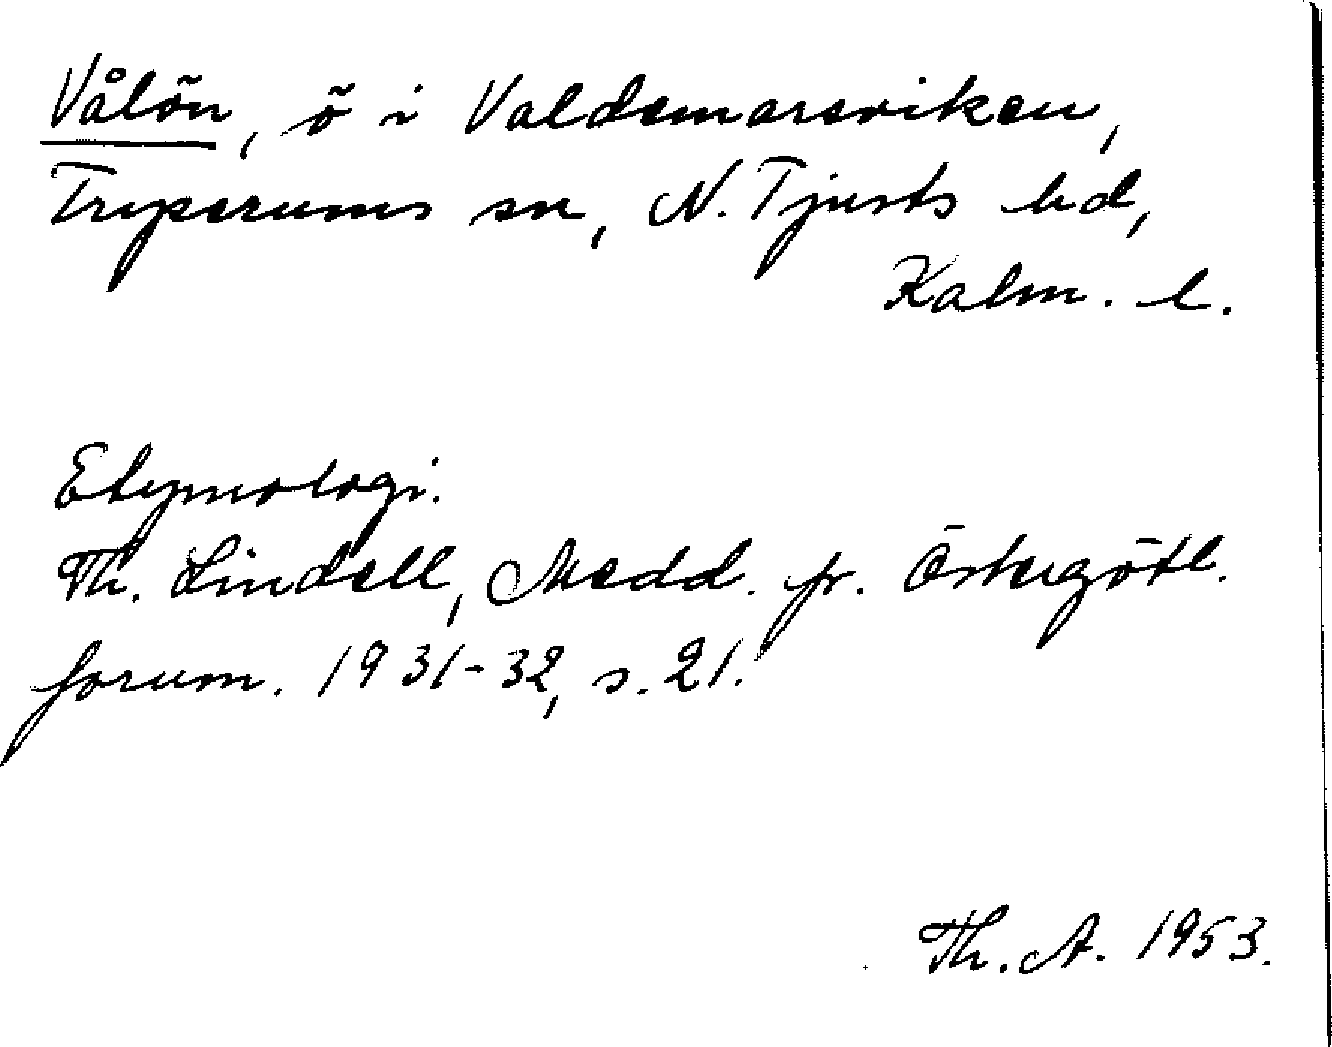 Vålön, ö i Valdemarsviken,
Tryserums sn, N. Tjusts hd,
Kalm. l.
Etymologi.
Th. Lindell, Medd. fr. Östergötl.
fornm. 1931-32, s. 21.
Th. A. 1953.